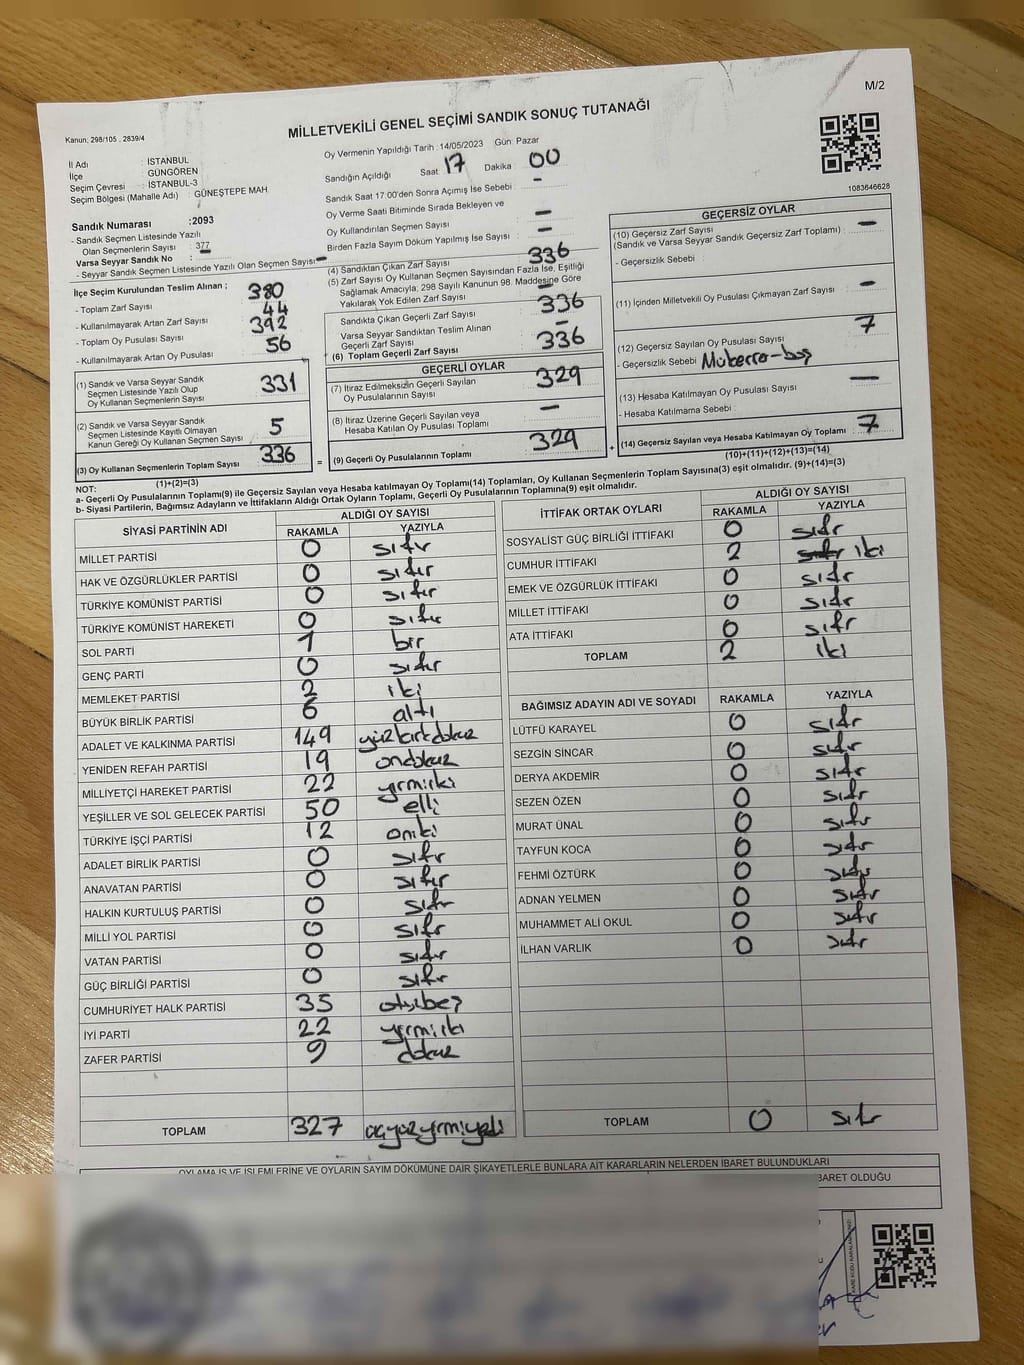 M/2
Kanun: 298/105 , 2839/4
MİLLETVEKİLİ GENEL SEÇİMİ SANDIK SONUÇ TUTANAĞI
İl Adı : İSTANBUL
İlçe : GÜNGÖREN
Seçim Çevresi : İSTANBUL-3
Seçim Bölgesi (Mahalle Adı) : GÜNEŞTEPE MAH
Sandık Numarası : 2093
- Sandık Seçmen Listesinde Yazılı
Olan Seçmenlerin Sayısı : 377
Varsa Seyyar Sandık No : –
- Seyyar Sandık Seçmen Listesinde Yazılı Olan Seçmen Sayısı: –
Oy Vermenin Yapıldığı Tarih : 14/05/2023 Gün: Pazar
Sandığın Açıldığı Saat 17 Dakika 00
Sandık Saat 17.00'den Sonra Açımış İse Sebebi : –
Oy Verme Saati Bitiminde Sırada Bekleyen ve
Oy Kullandırılan Seçmen Sayısı : –
Birden Fazla Sayım Döküm Yapılmış İse Sayısı : –
1083646628
İlçe Seçim Kurulundan Teslim Alınan ;
- Toplam Zarf Sayısı : 380
- Kullanılmayarak Artan Zarf Sayısı : 44
- Toplam Oy Pusulası Sayısı : 392
- Kullanılmayarak Artan Oy Pusulası : 56
(1) Sandık ve Varsa Seyyar Sandık
Seçmen Listesinde Yazılı Olup
Oy Kullanan Seçmenlerin Sayısı : 331
(2) Sandık ve Varsa Seyyar Sandık
Seçmen Listesinde Kayıtlı Olmayan
Kanun Gereği Oy Kullanan Seçmen Sayısı : 5
(3) Oy Kullanan Seçmenlerin Toplam Sayısı : 336
(1)+(2)=(3)
(4) Sandıktan Çıkan Zarf Sayısı : 336
(5) Zarf Sayısı Oy Kullanan Seçmen Sayısından Fazla İse, Eşitliği
Sağlamak Amacıyla; 298 Sayılı Kanunun 98. Maddesine Göre
Yakılarak Yok Edilen Zarf Sayısı : –
Sandıkta Çıkan Geçerli Zarf Sayısı : 336
Varsa Seyyar Sandıktan Teslim Alınan
Geçerli Zarf Sayısı : –
(6) Toplam Geçerli Zarf Sayısı : 336
GEÇERLİ OYLAR
(7) İtiraz Edilmeksizin Geçerli Sayılan
Oy Pusulalarının Sayısı : 329
(8) İtiraz Üzerine Geçerli Sayılan veya
Hesaba Katılan Oy Pusulası Toplamı : –
= (9) Geçerli Oy Pusulalarının Toplamı : 329
GEÇERSİZ OYLAR
(10) Geçersiz Zarf Sayısı : –
(Sandık ve Varsa Seyyar Sandık Geçersiz Zarf Toplamı)
- Geçersizlik Sebebi :
(11) İçinden Milletvekili Oy Pusulası Çıkmayan Zarf Sayısı : –
(12) Geçersiz Sayılan Oy Pusulası Sayısı : 7
- Geçersizlik Sebebi : Müberra-boş
(13) Hesaba Katılmayan Oy Pusulası Sayısı : –
- Hesaba Katılmama Sebebi :
+ (14) Geçersiz Sayılan veya Hesaba Katılmayan Oy Toplamı : 7
(10)+(11)+(12)+(13)=(14)
NOT:
a- Geçerli Oy Pusulalarının Toplamı(9) ile Geçersiz Sayılan veya Hesaba katılmayan Oy Toplamı(14) Toplamları, Oy Kullanan Seçmenlerin Toplam Sayısına(3) eşit olmalıdır. (9)+(14)=(3)
b- Siyasi Partilerin, Bağımsız Adayların ve İttifakların Aldığı Ortak Oyların Toplamı, Geçerli Oy Pusulalarının Toplamına(9) eşit olmalıdır.
SİYASİ PARTİNİN ADI ALDIĞI OY SAYISI
RAKAMLA YAZIYLA
MİLLET PARTİSİ 0 sıfır
HAK VE ÖZGÜRLÜKLER PARTİSİ 0 sıfır
TÜRKİYE KOMÜNİST PARTİSİ 0 sıfır
TÜRKİYE KOMÜNİST HAREKETİ 0 sıfır
SOL PARTİ 1 bir
GENÇ PARTİ 0 sıfır
MEMLEKET PARTİSİ 2 iki
BÜYÜK BİRLİK PARTİSİ 6 altı
ADALET VE KALKINMA PARTİSİ 149 yüzkırkdokuz
YENİDEN REFAH PARTİSİ 19 ondokuz
MİLLİYETÇİ HAREKET PARTİSİ 22 yirmiiki
YEŞİLLER VE SOL GELECEK PARTİSİ 50 elli
TÜRKİYE İŞÇİ PARTİSİ 12 oniki
ADALET BİRLİK PARTİSİ 0 sıfır
ANAVATAN PARTİSİ 0 sıfır
HALKIN KURTULUŞ PARTİSİ 0 sıfır
MİLLİ YOL PARTİSİ 0 sıfır
VATAN PARTİSİ 0 sıfır
GÜÇ BİRLİĞİ PARTİSİ 0 sıfır
CUMHURİYET HALK PARTİSİ 35 otuzbeş
İYİ PARTİ 22 yirmiiki
ZAFER PARTİSİ 9 dokuz
TOPLAM 327 üçyüzyirmiyedi
İTTİFAK ORTAK OYLARI ALDIĞI OY SAYISI
RAKAMLA YAZIYLA
SOSYALİST GÜÇ BİRLİĞİ İTTİFAKI 0 sıfır
CUMHUR İTTİFAKI 2 sıfır iki
EMEK VE ÖZGÜRLÜK İTTİFAKI 0 sıfır
MİLLET İTTİFAKI 0 sıfır
ATA İTTİFAKI 0 sıfır
TOPLAM 2 iki
BAĞIMSIZ ADAYIN ADI VE SOYADI RAKAMLA YAZIYLA
LÜTFÜ KARAYEL 0 sıfır
SEZGİN SİNCAR 0 sıfır
DERYA AKDEMİR 0 sıfır
SEZEN ÖZEN 0 sıfır
MURAT ÜNAL 0 sıfır
TAYFUN KOCA 0 sıfır
FEHMİ ÖZTÜRK 0 sıfır
ADNAN YELMEN 0 sıfır
MUHAMMET ALİ OKUL 0 sıfır
İLHAN VARLIK 0 sıfır
TOPLAM 0 sıfır
OYLAMA İŞ VE İŞLEMLERİNE VE OYLARIN SAYIM DÖKÜMÜNE DAİR ŞİKAYETLERLE BUNLARA AİT KARARLARIN NELERDEN İBARET BULUNDUKLARI
BARET OLDUĞU